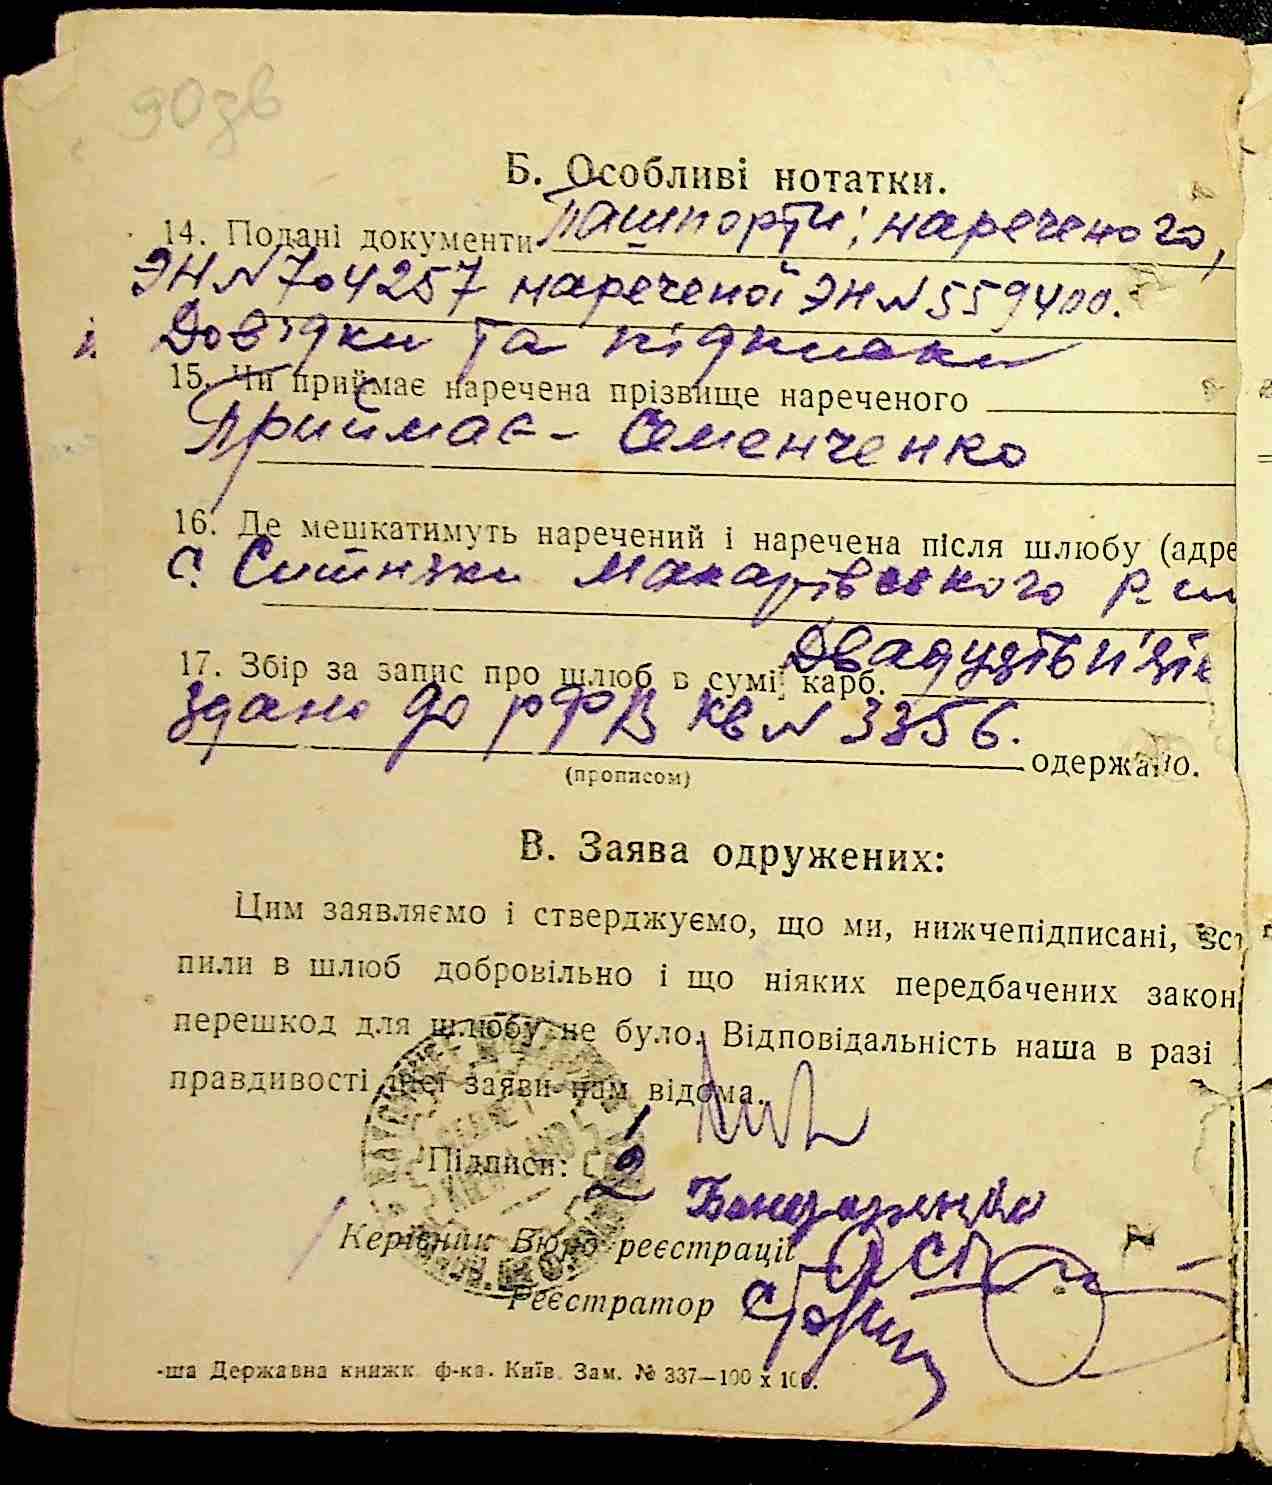 90зв
Б. Особливі нотатки.
14. Подані документи Пашпорти; нареченого,
ЭН N 704257 нареченої ЭН N 559400.
Довідки та підписки
15. Чи приймає наречена прізвище нареченого
Приймає - Семенченко
16. Де мешкатимуть наречений і наречена після шлюбу (адре
с. Ситняки Макарівського р
17. Збір за запис про шлюб в сумі карб. Двадцять п'ять
здано до рФВ кв N 3356.
одержано.
(прописом)
В. Заява одружених:
Цим заявляємо і стверджуємо, що ми, нижчепідписані, вст
пили в шлюб добровільно і що ніяких передбачених закон
перешкод для шлюбу не було. Відповідальність наша в разі
правдивості цієї заяви нам відома.
1
Підписи:
2 Бондаренко
Керівник Бюро реєстрації
Реєстратор
-ша Державна книжк. ф-ка. Київ. Зам. № 337—100 х 100.